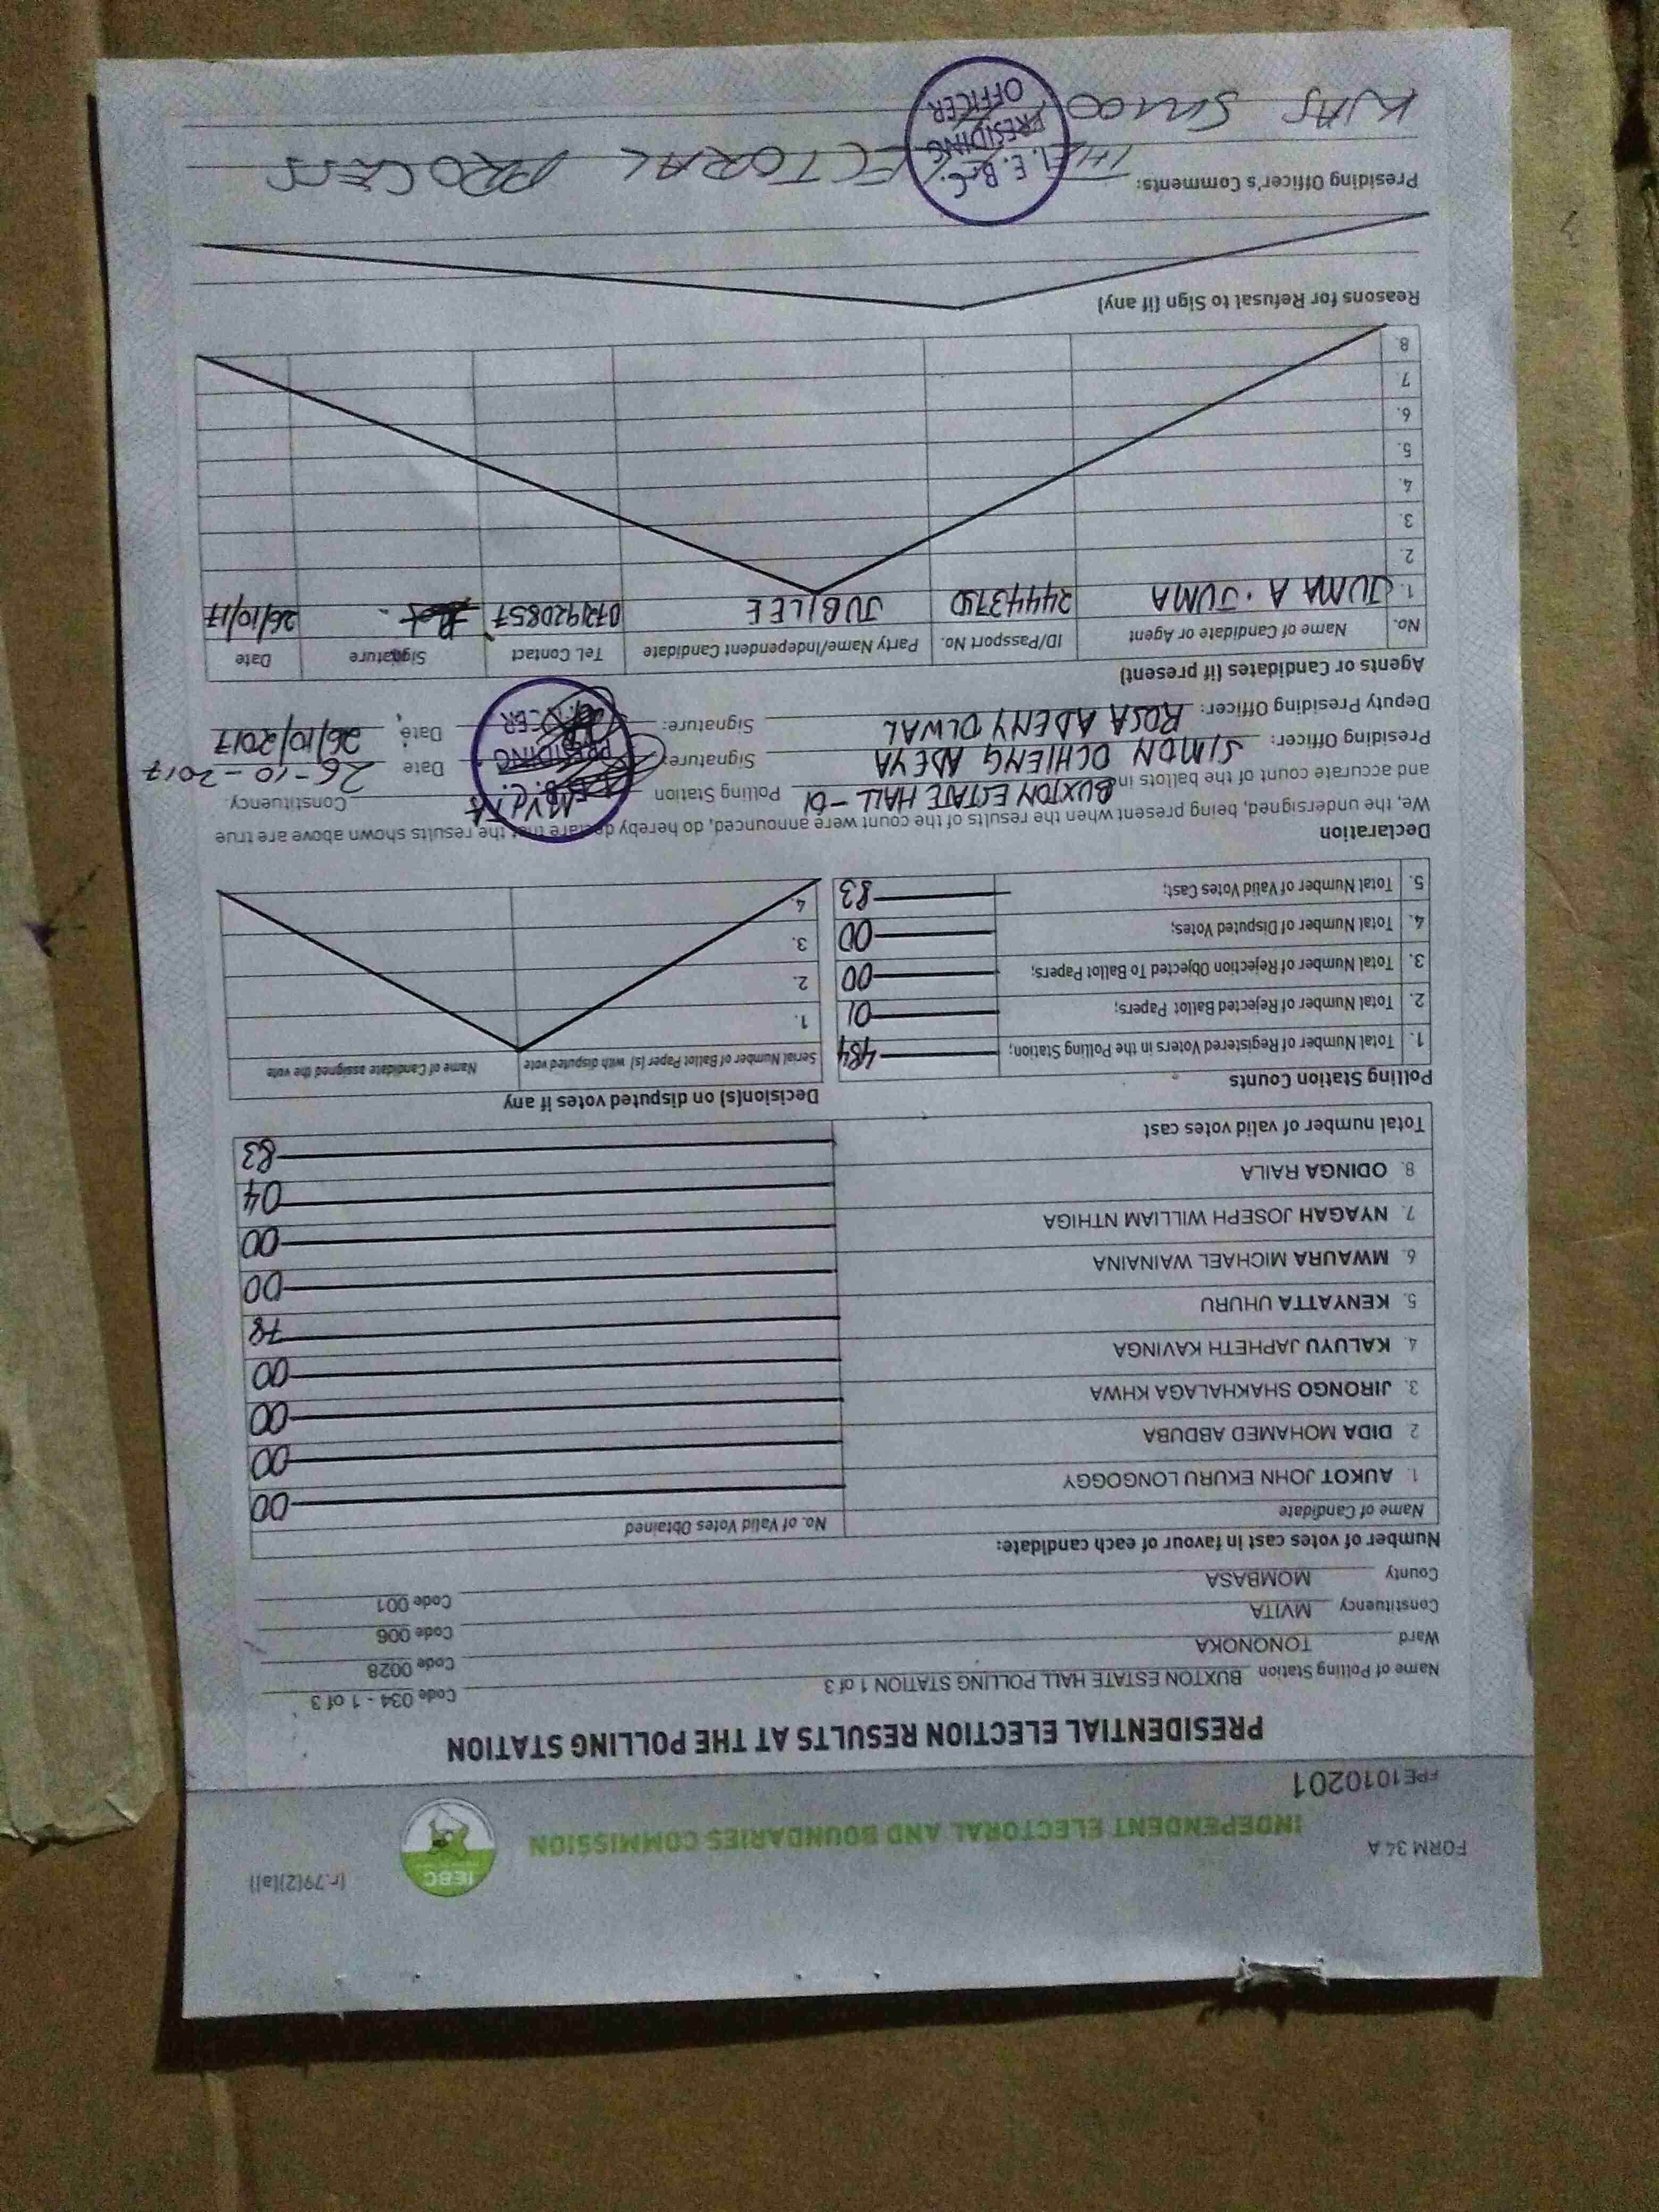 FORM 34A
(r.79(2)(a))
INDEPENDENT ELECTORAL AND BOUNDARIES COMMISSION
IEBC
FPE1010201
PRESIDENTIAL ELECTION RESULTS AT THE POLLING STATION
Name of Polling Station BUXTON ESTATE HALL POLLING STATION 1 of 3 Code 034 - 1 of 3
Ward TONONOKA Code 0028
Constituency MVITA Code 006
County MOMBASA Code 001
Number of votes cast in favour of each candidate:
Name of Candidate No. of Valid Votes Obtained
1. AUKOT JOHN EKURU LONGOGGY 00
2 DIDA MOHAMED ABDUBA 00
3. JIRONGO SHAKHALAGA KHWA 00
4 KALUYU JAPHETH KAVINGA 00
5. KENYATTA UHURU 79
6. MWAURA MICHAEL WAINAINA 00
7. NYAGAH JOSEPH WILLIAM NTHIGA 00
8. ODINGA RAILA 04
Total number of valid votes cast 83
Polling Station Counts
1. Total Number of Registered Voters in the Polling Station; 484
2. Total Number of Rejected Ballot Papers; 01
3. Total Number of Rejection Objected To Ballot Papers; 00
4. Total Number of Disputed Votes; 00
5. Total Number of Valid Votes Cast; 83
Decision(s) on disputed votes if any
Serial Number of Ballot Paper (s) with disputed vote Name of Candidate assigned the vote
1.
2.
3.
4.
Declaration
We, the undersigned, being present when the results of the count were announced, do hereby declare that the results shown above are true
and accurate count of the ballots in BUXTON ESTATE HALL - 01 Polling Station MVITA Constituency.
Presiding Officer: SIMON OCHIENG ADEYA Signature: Date 26-10-2017
Deputy Presiding Officer: ROSA ADENY OLWAL Signature: Date, 26/10/2017
I.E.B.C. PRESIDING OFFICER
Agents or Candidates (if present)
No. Name of Candidate or Agent ID/Passport No. Party Name/Independent Candidate Tel. Contact Signature Date
1. JUMA A. JUMA JUBILEE 0721920857 26/10/17
2.
3.
4.
5.
6.
7.
8.
Reasons for Refusal to Sign (if any)
Presiding Officer's Comments: THE ELECTORAL PROCESS
WAS SMOOTH
I.E.B.C. PRESIDING OFFICER